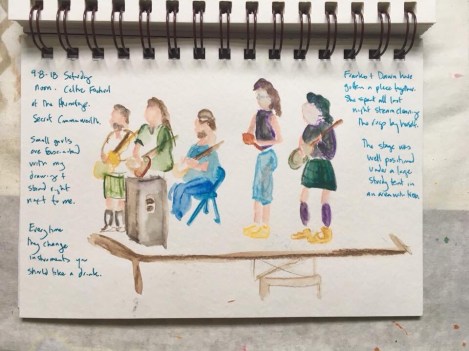 9-8-18 Saturday
noon. Celtic Festival
at the Hermitage.
Secret Commonwealth.
Small girls
are fascinated
with my
drawing &
stand right
next to me.
Everytime
they change
instruments you
should take a drink.
Frankie & Dawn have
gotten a place together.
She spent all last
night steam cleaning
the rugs by hand.
The stage was
well positioned
under a large
sturdy tent in
an area with trees.